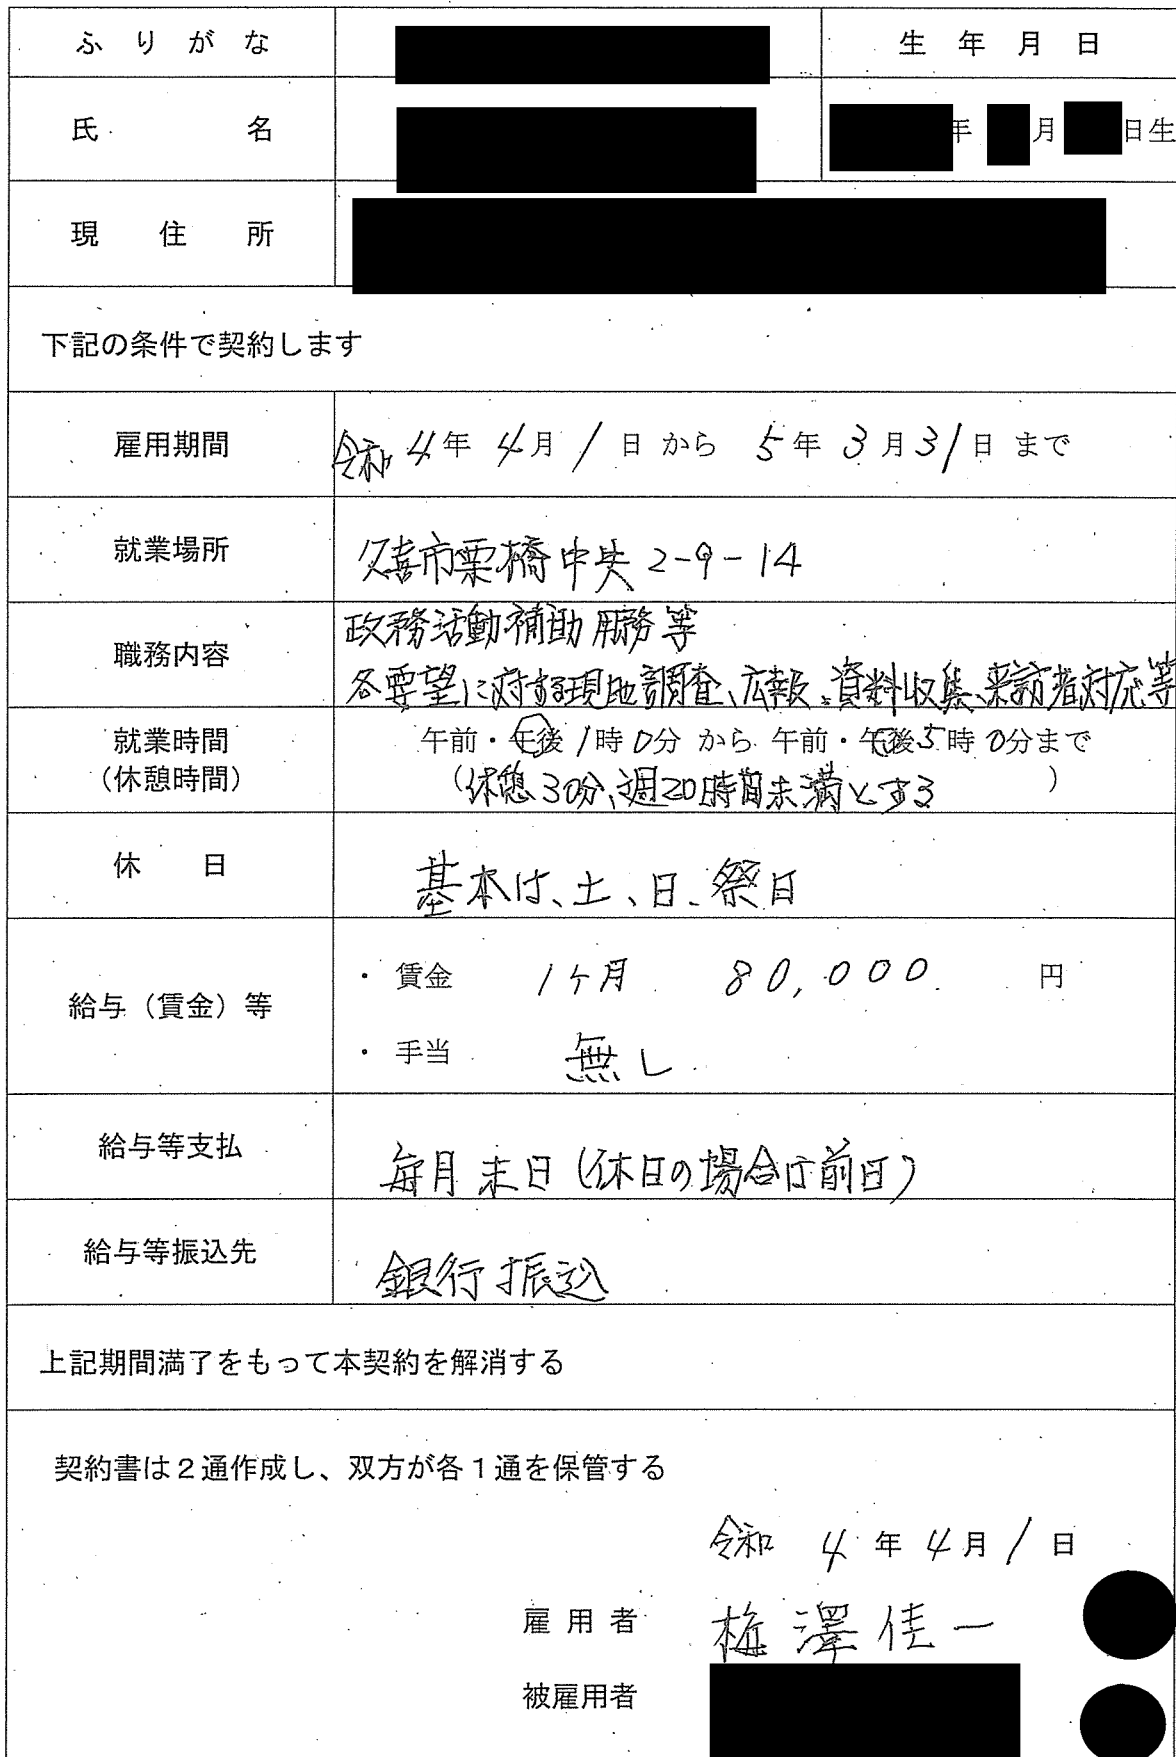 ふりがな
生年月日
氏名
年 月 日生
現住所
下記の条件で契約します
雇用期間
令和4年4月1日から 5年3月31日まで
就業場所
久喜市栗橋中央2-9-14
職務内容
政務活動補助用務等
各要望に対する現地調査、広報、資料収集、来訪者対応等
就業時間
(休憩時間)
午前・午後1時0分から 午前・午後5時0分まで
(休憩30分、週20時間未満とする)
休日
基本は、土、日、祭日
給与(賃金)等
・賃金 1ヶ月 80,000. 円
・手当 無し
給与等支払
毎月末日(休日の場合は前日)
給与等振込先
銀行振込
上記期間満了をもって本契約を解消する
契約書は2通作成し、双方が各1通を保管する
令和 4年4月1日
雇用者 梅澤佳一
被雇用者